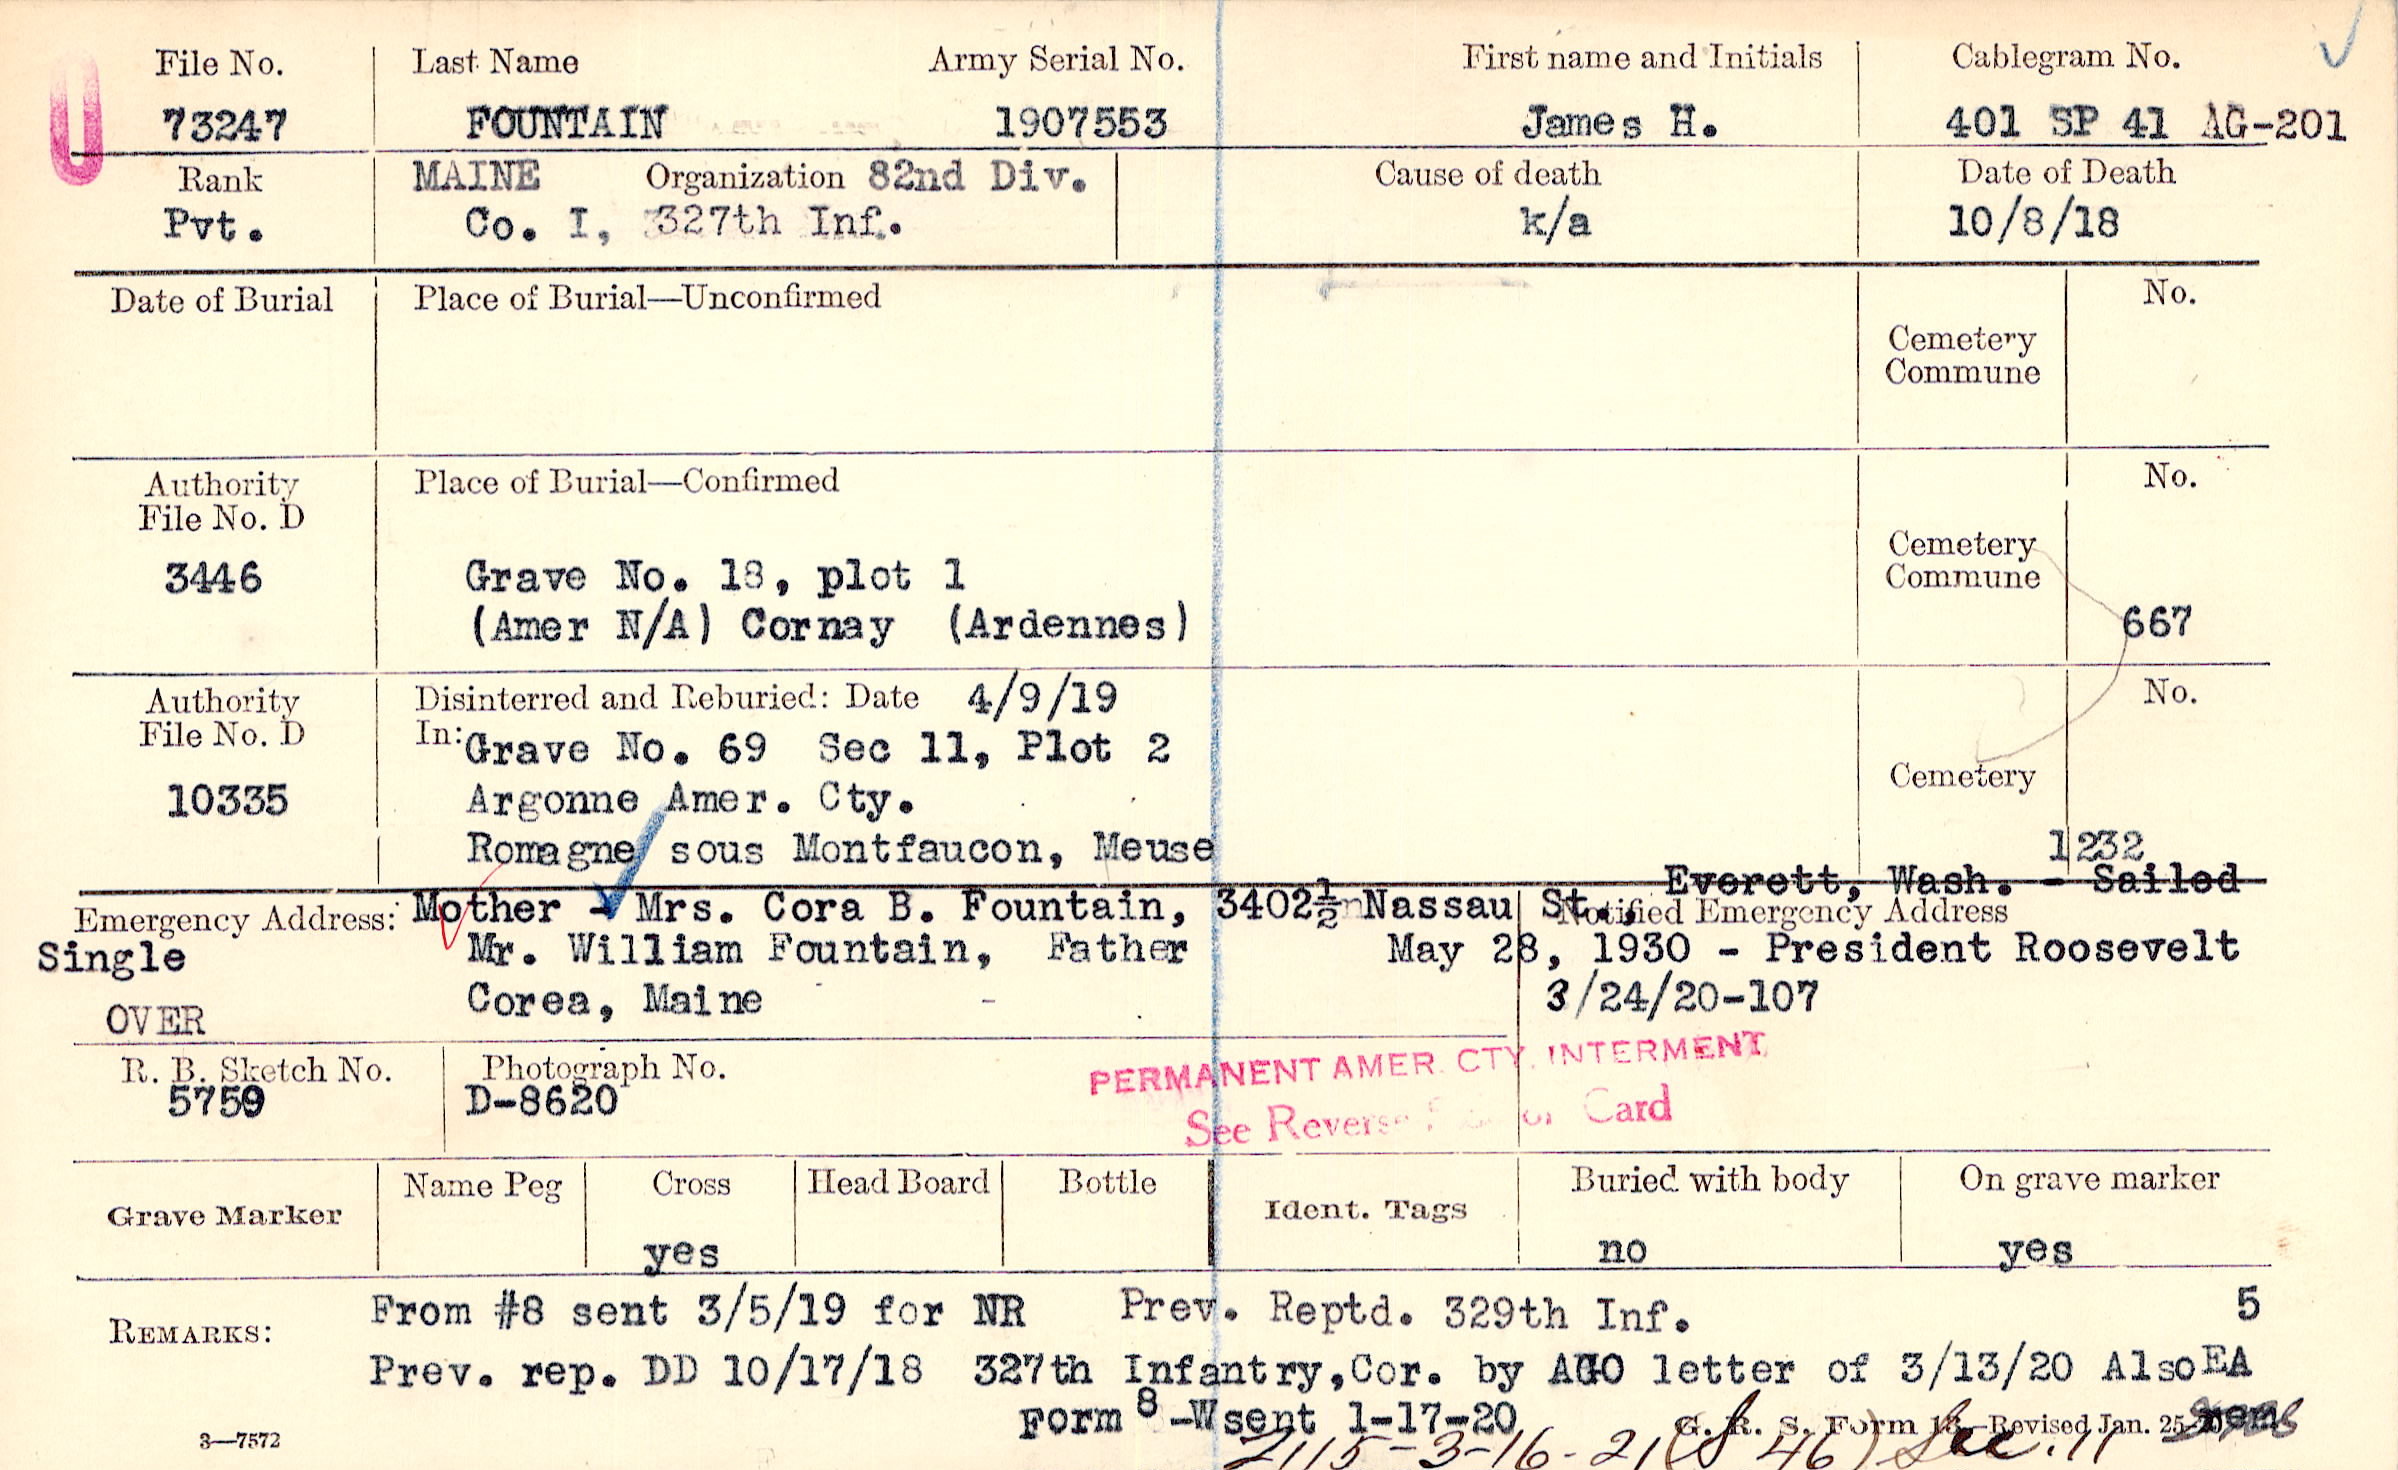 File No. Last Name Army Serial No. First name and Initials Cablegram No.
73247 FOUNTAIN 1907553 James H. 401 SP 41 AG-201
Rank MAINE Organization 82nd Div. Cause of death Date of Death
Pvt. Co. I, 327th Inf. k/a 10/8/18
Date of Burial Place of Burial—Unconfirmed No.
Cemetery
Commune
Authority Place of Burial—Confirmed No.
File No. D
Cemetery
3446 Grave No. 18, plot 1 Commune
(Amer N/A) Cornay (Ardennes) 667
Authority Disinterred and Reburied: Date 4/9/19 No.
File No. D In: Grave No. 69 Sec 11, Plot 2
Cemetery
10335 Argonne Amer. Cty.
Romagne sous Montfaucon, Meuse 1232
Everett, Wash. - Sailed
Emergency Address: Mother - Mrs. Cora B. Fountain, 3402½ Nassau St., Notified Emergency Address
Single Mr. William Fountain, Father May 28, 1930 - President Roosevelt
OVER Corea, Maine 3/24/20-107
R. B. Sketch No. Photograph No. PERMANENT AMER. CTY. INTERMENT
5759 D-8620 See Reverse Card
Grave Marker Name Peg Cross Head Board Bottle Ident. Tags Buried with body On grave marker
yes no yes
REMARKS: From #8 sent 3/5/19 for NR Prev. Reptd. 329th Inf. 5
Prev. rep. DD 10/17/18 327th Infantry,Cor. by AGO letter of 3/13/20 Also EA
Form 8 -W sent 1-17-20
3—7572 G. R. S. Form 13—Revised Jan. 25
2115-3-16-21 (S 46) Sec. 11